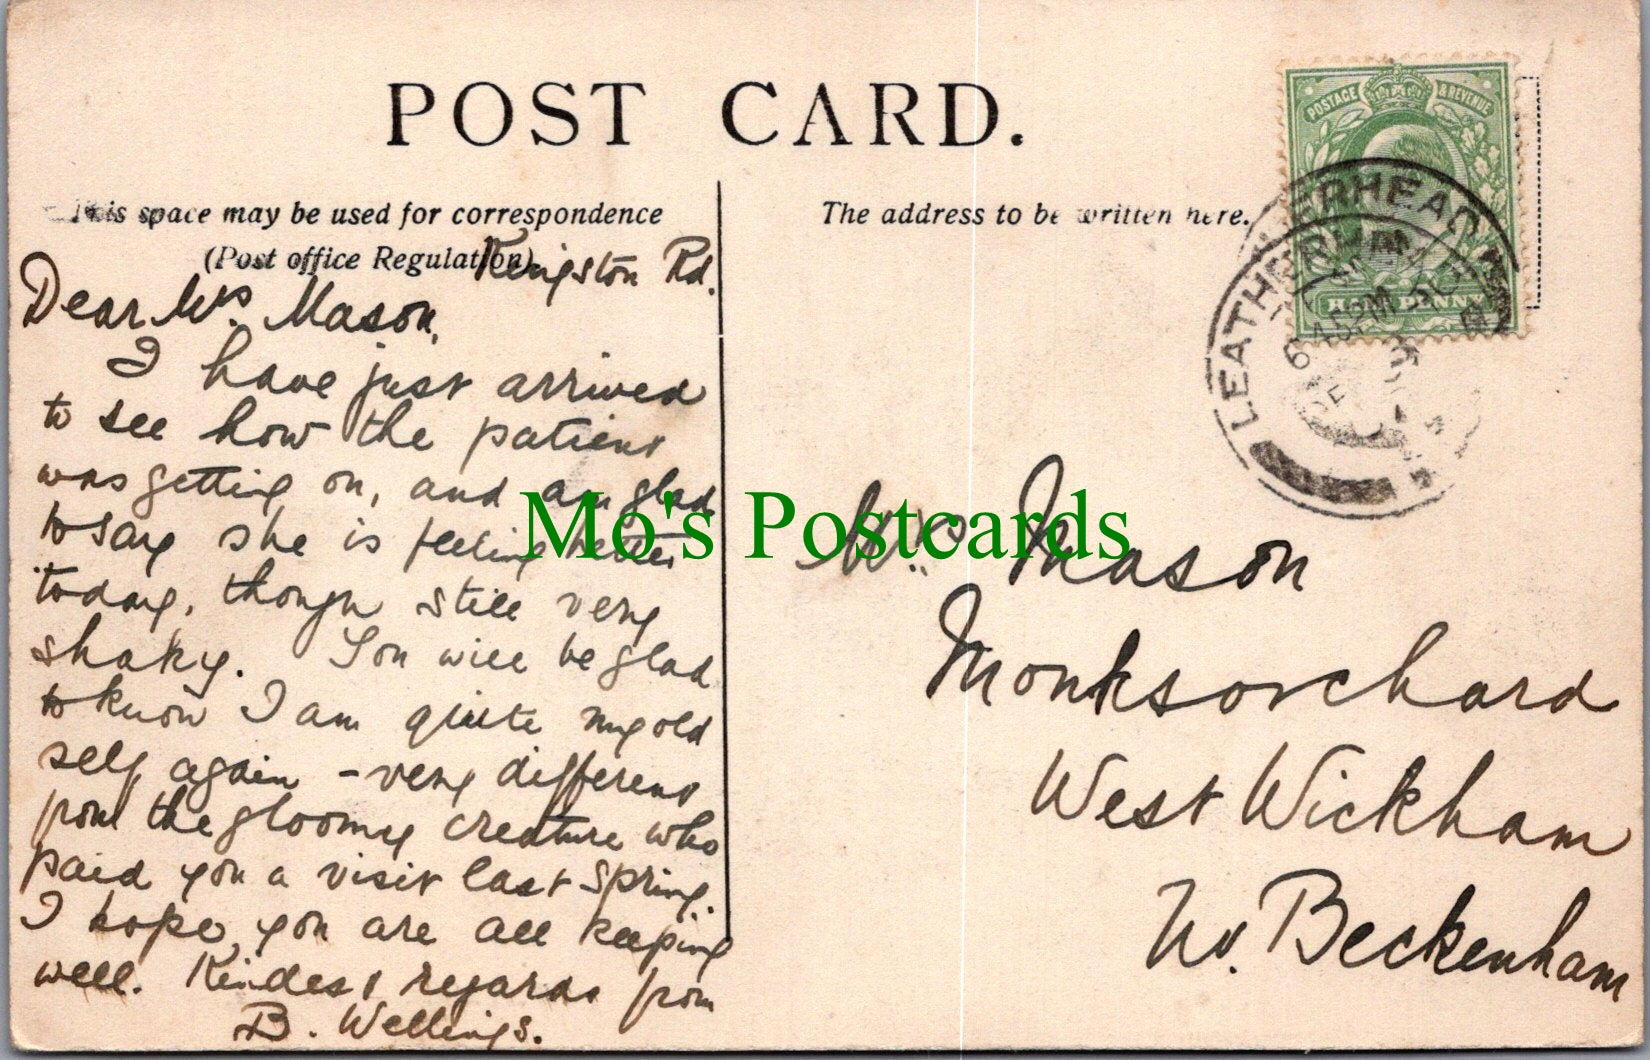 POST CARD.
This space may be used for correspondence
(Post office Regulation)
The address to be written here.
POSTAGE & REVENUE
HALFPENNY
LEATHERHEAD
Kingston Rd.
Dear Mrs. Mason,
I have just arrived
to see how the patient
was getting on, and am glad
to say she is feeling better
today, though still very
shaky. You will be glad
to know I am quite my old
self again - very different
from the gloomy creature who
paid you a visit last Spring.
I hope you are all keeping
well. Kindest regards from
B. Wellings.
Mrs. Mason
Monksorchard
West Wickham
Nr. Beckenham
Mo's Postcards